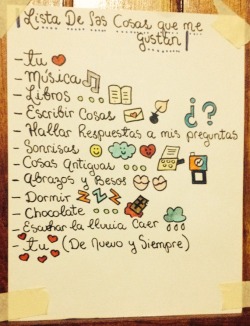 Lista De las Cosas que me
gustan
- tu
- Música
- Libros...
- Escribir Cosas
¿?
- Hallar Respuestas a mis preguntas
- Sonrisas
- Cosas Antiguas...
- Abrazos y Besos
- Dormir ZZZ
- Chocolate...
- Escuchar la lluvia Caer
- tu (De Nuevo y Siempre)